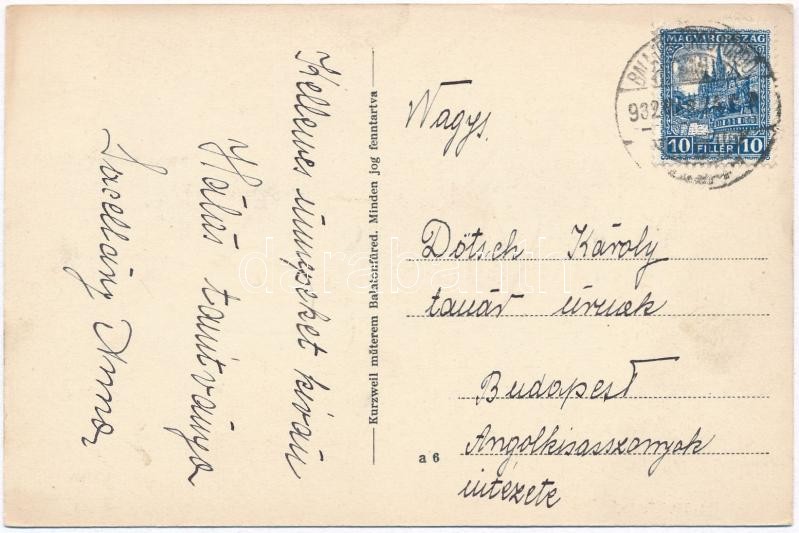 Kellemes ünnepeket kíván
Hálás tanítványa
Anna
Kurzweil műterem Balatonfüred. Minden jog fenntartva
a 6
MAGYARORSZÁG
10 FILLÉR 10
932
Nagys.
Dötsch Károly
tanár úrnak
Budapest
Angolkisasszonyok
intézete
darabanth